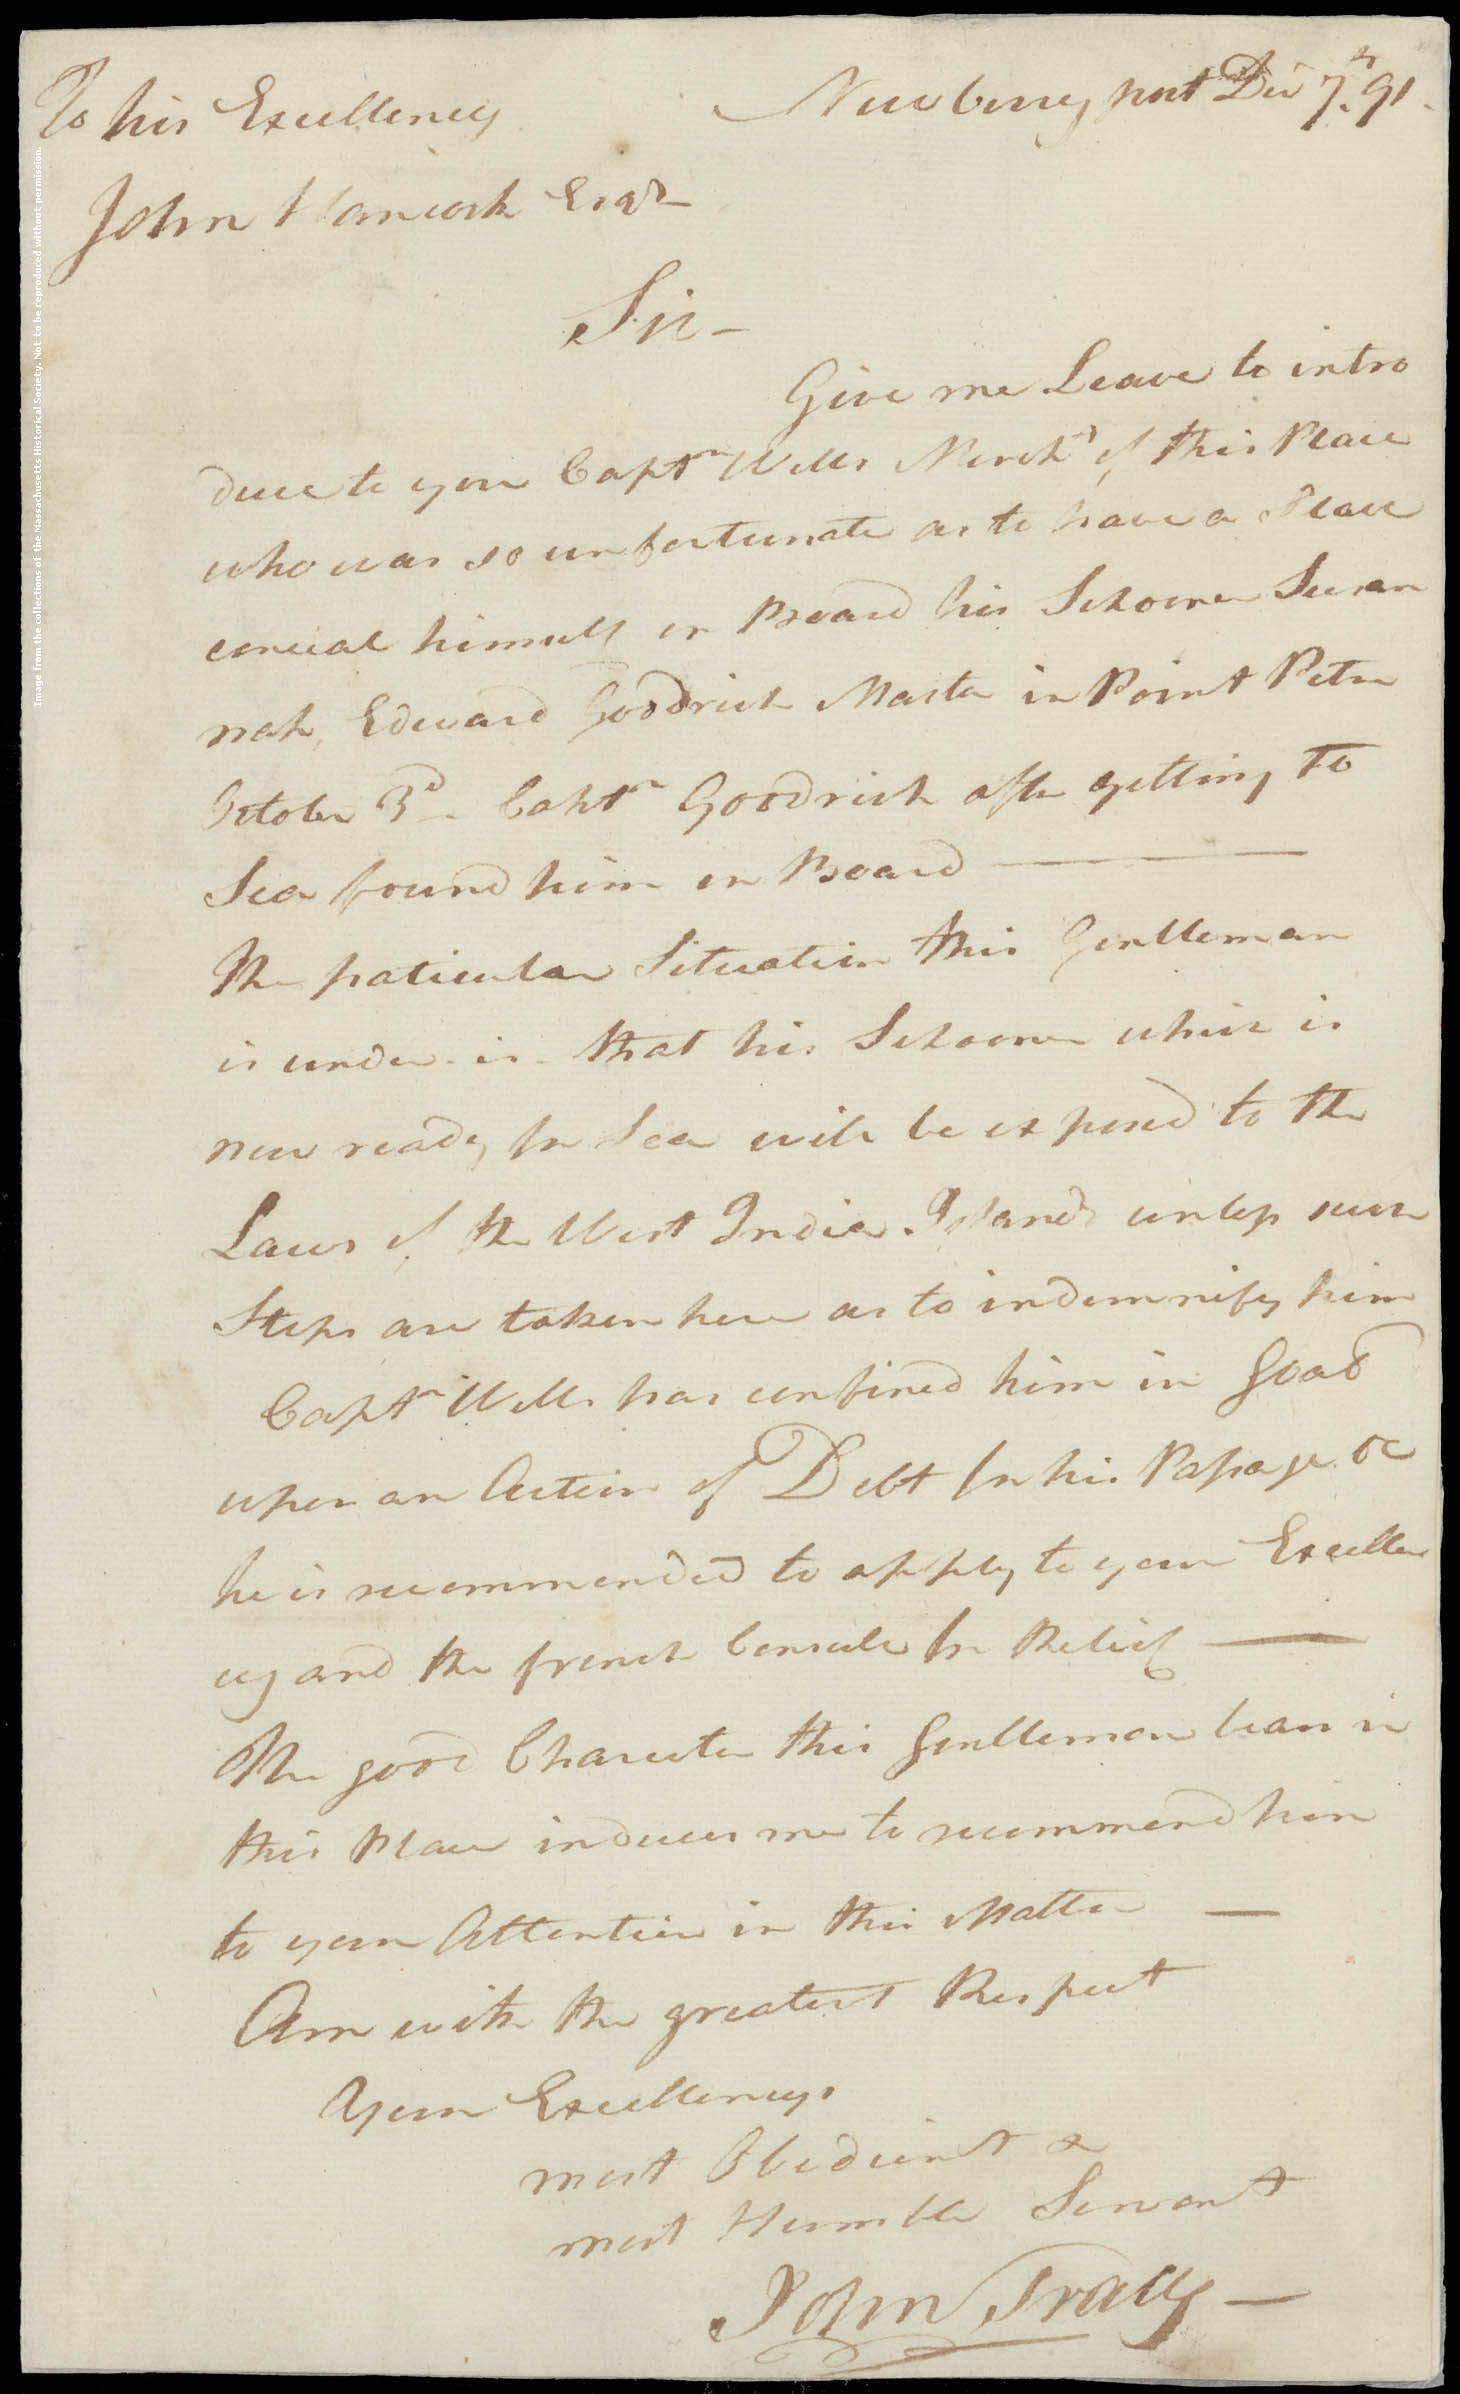 To his Excellency
Newbury port Decr 7th 91.
John Hancock Esqr
Sir –
Give me Leave to intro
duce to you Captn Wells Mercht of this Place
who was so unfortunate as to have a Slave
conceal himself on Board his Schooner Susan
nah, Edward Goodrich Master in Point Petre
October 3d – Captn Goodrich after getting to
Sea found him on Board —
The paticular Situation this Gentleman
is under is that his Schooner which is
now ready for Sea will be exposed to the
Laws of the West India Islands unless such
Steps are taken here as to indemnify him
Captn Wells has confined him in Goal
upon an Action of Debt for his Passage &c
he is recommended to apply to your Excellen
cy and the french Consul for Relief —
The good Character this Gentleman bears in
this Place induces me to recommend him
to your Attention in this Matter —
Am with the greatest Respect
Your Excellencys
most Obedient &
most Humble Servant
John Tracy –
Image from the collections of the Massachusetts Historical Society. Not to be reproduced without permission.